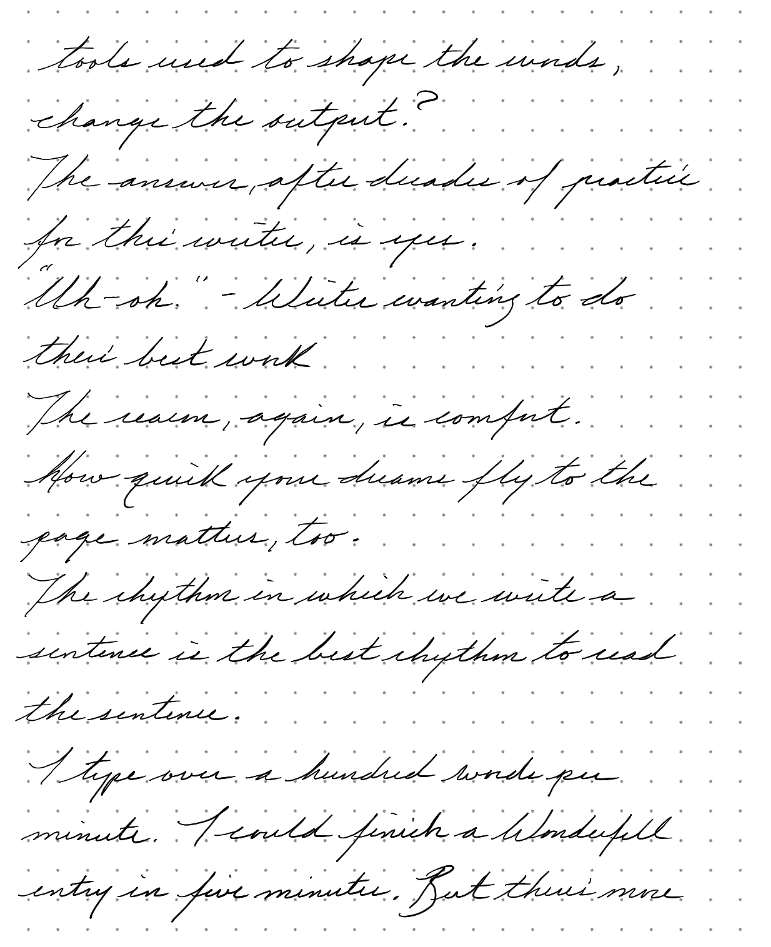 tools used to shape the words,
change the output?
The answer, after decades of practice
for this writer, is yes.
"Uh-oh." - Writer wanting to do
their best work
The reason, again, is comfort.
How quick your dreams fly to the
page matters, too.
The rhythm in which we write a
sentence is the best rhythm to read
the sentence.
I type over a hundred words per
minute. I could finish a Wonderfell
entry in five minutes. But there's more